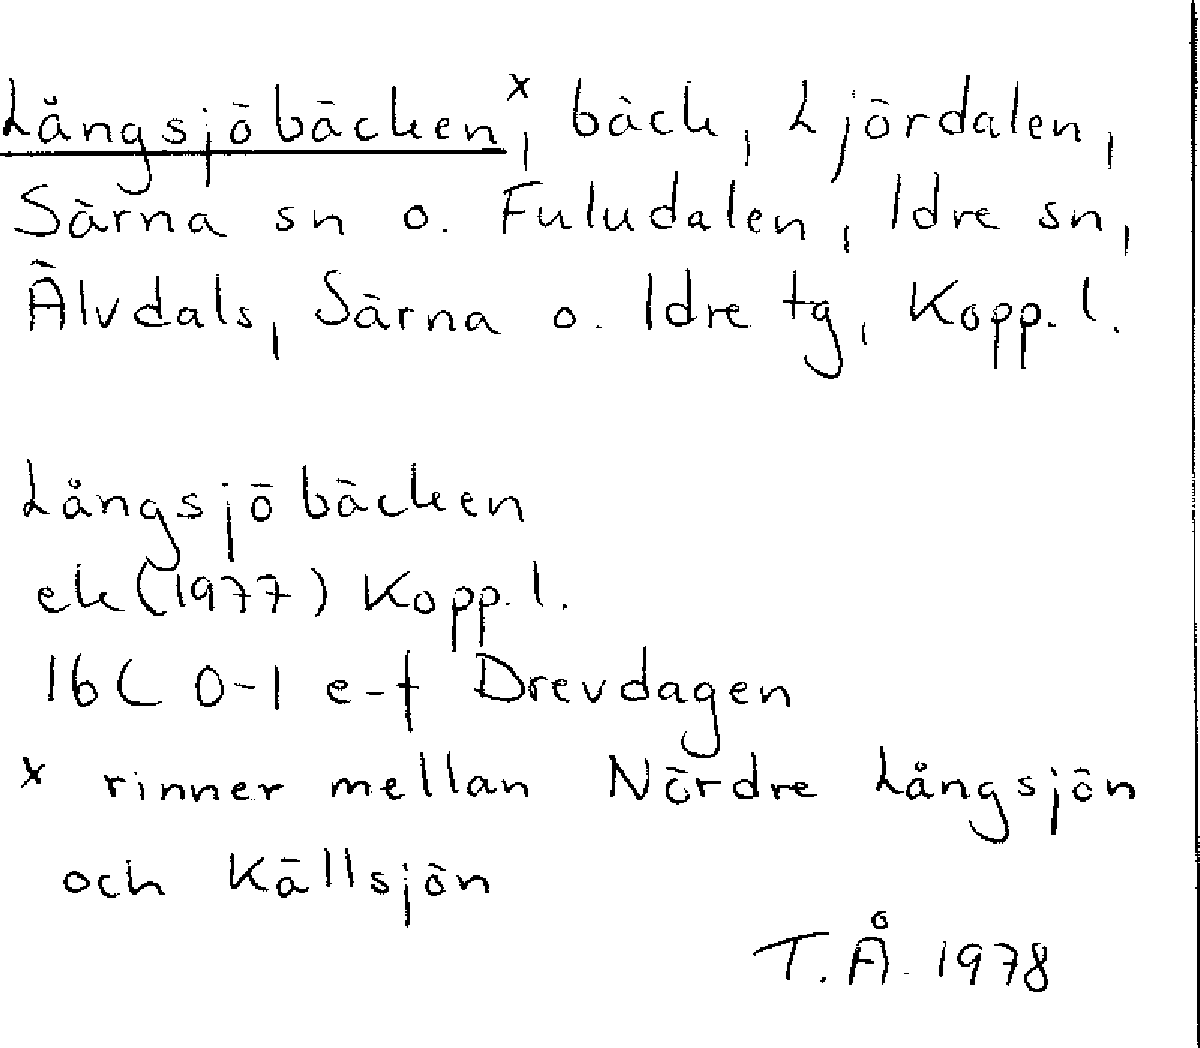 Långsjöbäcken ˣ, bäck, Ljördalen,
Särna sn o. Fuludalen, Idre sn,
Älvdals, Särna o. Idre tg, Kopp. l.
Långsjöbäcken
ek (1977) Kopp. l.
16C 0-1 e-f Drevdagen
x rinner mellan Nördre Långsjön
och Källsjön
T.Å. 1978